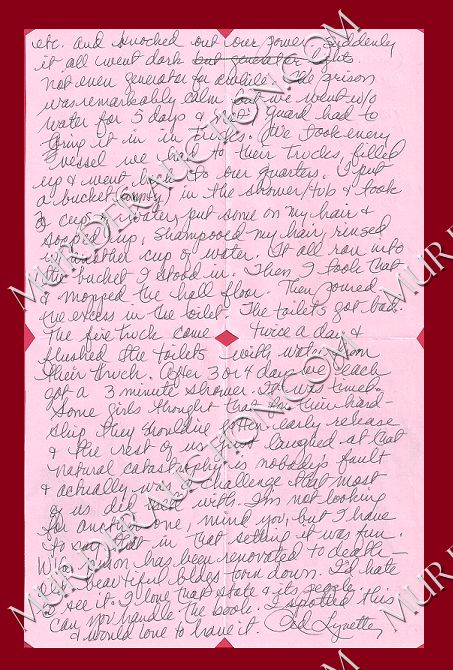 etc. and knocked out our power. Suddenly
it all went dark but generator lights.
Not even generator for awhile. The prison
was remarkably calm but we went w/o
water for 5 days & Nat'l Guard had to
bring it in in trucks. We took every
vessel we had to their trucks, filled
up & went back to our quarters. I put
a bucket (empty) in the shower/tub & took
a cup of water, put some on my hair &
soaped up, shampooed my hair, rinsed
w/ another cup of water. It all ran into
the bucket I stood in. Then I took that
& mopped the hall floor. Then poured
the excess in the toilet. The toilets got bad.
The fire truck came twice a day &
flushed the toilets with water from
their truck. After 3 or 4 days we each
got a 3 minute shower. It was timed.
Some girls thought that for their hard-
ship they should've gotten early release
& the rest of us just laughed at that
natural catastrophy is nobody's fault
& actually was a challenge that most
of us did well with. I'm not looking
for another one, mind you, but I have
to say that in that setting it was fun.
prison has been renovated to death—
all beautiful bldgs torn down. I'd hate
to see it. I love that state & its people.
Can you handle the book. I spotted this
& would love to have it. Lynette
MURDERAUCTION.COM